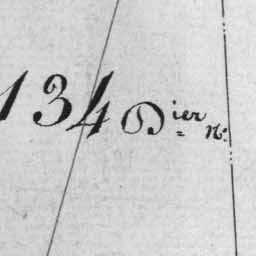 134 Dier N: